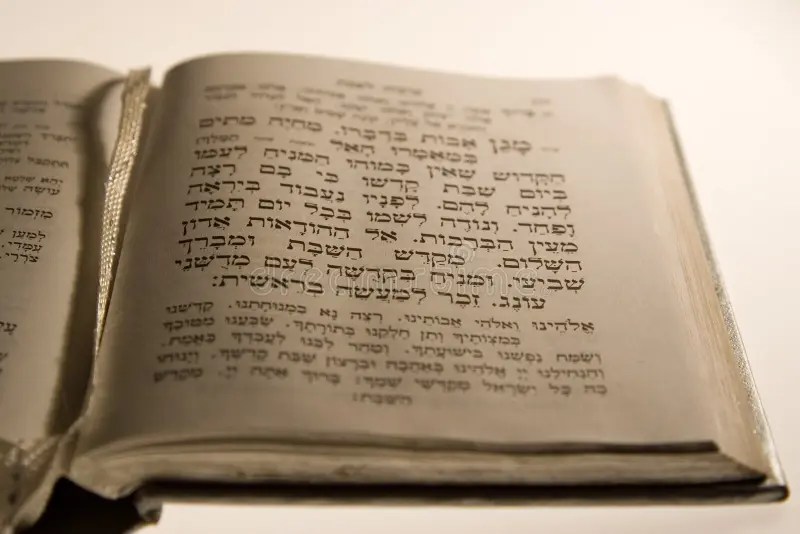 מָגֵן אָבוֹת בִּדְבָרוֹ. מְחַיֵּה מֵתִים
בְּמַאֲמָרוֹ הָאֵל
הַקָּדוֹשׁ שֶׁאֵין כָּמוֹהוּ הַמֵּנִיחַ לְעַמּוֹ
בְּיוֹם שַׁבַּת קָדְשׁוֹ כִּי בָם רָצָה
לְהָנִיחַ לָהֶם. לְפָנָיו נַעֲבוֹד בְּיִרְאָה
וָפַחַד. וְנוֹדֶה לִשְׁמוֹ בְּכָל יוֹם תָּמִיד
מֵעֵין הַבְּרָכוֹת. אֵל הַהוֹדָאוֹת אֲדוֹן
הַשָּׁלוֹם. מְקַדֵּשׁ הַשַּׁבָּת וּמְבָרֵךְ
שְׁבִיעִי. וּמֵנִיחַ בִּקְדֻשָּׁה לְעַם מְדֻשְּׁנֵי
עוֹנֶג. זֵכֶר לְמַעֲשֵׂה בְרֵאשִׁית:
אֱלֹהֵינוּ וֵאלֹהֵי אֲבוֹתֵינוּ. רְצֵה נָא בִמְנוּחָתֵנוּ. קַדְּשֵׁנוּ
בְּמִצְוֹתֶיךָ וְתֵן חֶלְקֵנוּ בְּתוֹרָתֶךָ. שַׂבְּעֵנוּ מִטּוּבֶךָ
וְשַׂמַּח נַפְשֵׁנוּ בִּישׁוּעָתֶךָ. וְטַהֵר לִבֵּנוּ לְעָבְדְּךָ בֶּאֱמֶת.
וְהַנְחִילֵנוּ יְיָ אֱלֹהֵינוּ בְּאַהֲבָה וּבְרָצוֹן שַׁבַּת קָדְשֶׁךָ. וְיָנוּחוּ
בָהּ כָּל יִשְׂרָאֵל מְקַדְּשֵׁי שְׁמֶךָ: בָּרוּךְ אַתָּה יְיָ. מְקַדֵּשׁ
הַשַּׁבָּת:
מִזְמוֹר
לְמַעַן
dreamstime